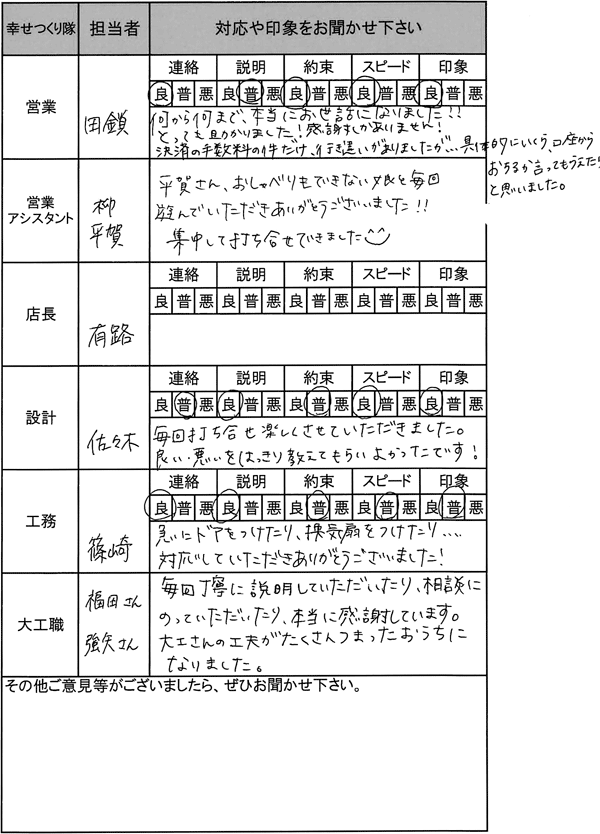 幸せつくり隊 担当者 対応や印象をお聞かせ下さい
営業 田鎖
連絡 説明 約束 スピード 印象
良 普 悪 良 普 悪 良 普 悪 良 普 悪 良 普 悪
何から何まで、本当にお世話になりました!!
とっても助かりました!感謝しかありません!
決済の手数料の件だけ、行き違いがありましたが…具体的にいくら、口座から
おちるか言ってもらえたら
と思いました。
営業
アシスタント
柳
平賀
平賀さん、おしゃべりもできない娘を毎回
遊んでいただきありがとうございました!!
集中して打ち合せできました
店長 有路
連絡 説明 約束 スピード 印象
良 普 悪 良 普 悪 良 普 悪 良 普 悪 良 普 悪
設計 佐々木
連絡 説明 約束 スピード 印象
良 普 悪 良 普 悪 良 普 悪 良 普 悪 良 普 悪
毎回打ち合せ楽しくさせていただきました。
良い・悪いをはっきり教えてもらいよかったです!
工務 篠崎
連絡 説明 約束 スピード 印象
良 普 悪 良 普 悪 良 普 悪 良 普 悪 良 普 悪
急にドアをつけたり、換気扇をつけたり….
対応していただきありがとうございました!
大工職
福田さん
強矢さん
毎回丁寧に説明していただいたり、相談に
のっていただいたり、本当に感謝しています。
大工さんの工夫がたくさんつまったおうちに
なりました。
その他ご意見等がございましたら、ぜひお聞かせ下さい。